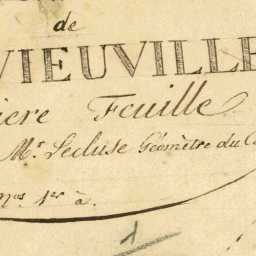 de
VIEUVILLE
ière Feuille
Mr. Lecluse Géomètre du C
nos 1er à.
1